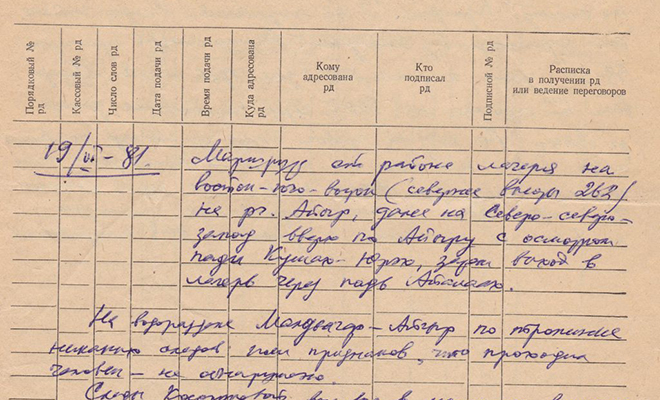 Порядковый № рд
Кассовый № рд
Число слов рд
Дата подачи рд
Время подачи рд
Куда адресована рд
Кому адресована рд
Кто подписал рд
Подписной № рд
Расписка в получении рд или ведение переговоров
19/VI-81.
Маршрут от района лагеря на
восток-юго-восток (севернее высоты 262)
на р. Айыр, далее на Северо-северо-
запад вверх по Айыру с осмотром
пади Кушак-Юряк, затем выход в
лагерь через падь
На водоразделе -Айыр по тропинке
никаких следов или признаков, что проходил
человек - не обнаружено.
Следы